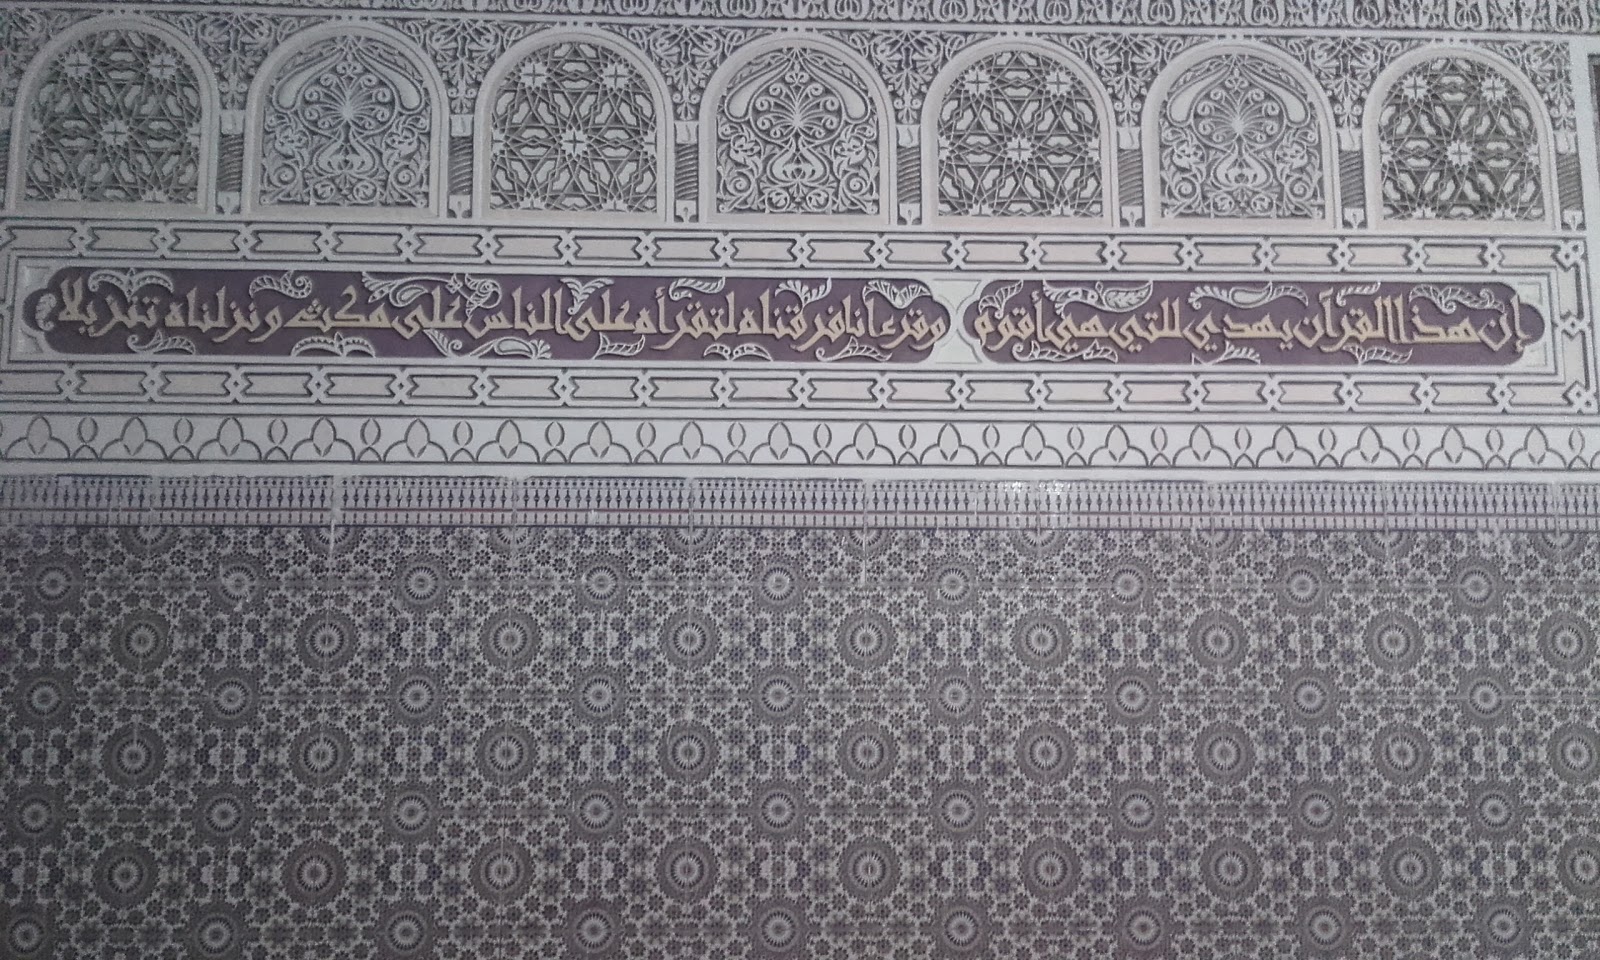 إن هذا القرآن يهدي للتي هي أقوم
وقرءانا فرقناه لتقرأه على الناس على مكث ونزلناه تنزيلا